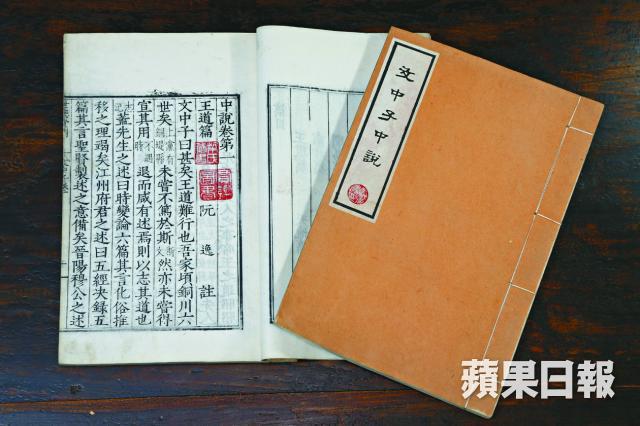 中說卷第一
王道篇 阮逸註
文中子曰甚矣王道難行也吾家頃銅川六
世矣上黨有銅堤縣未嘗不篤於斯斯文然亦未嘗得
宣其用不遇時退而咸有述焉則以志其道也
蓋先生之述曰時變論六篇其言化俗推
移之理竭矣江州府君之述曰五經决録五
篇其言聖賢製述之意備矣晉陽穆公之述
文中子中說
蘋果日報